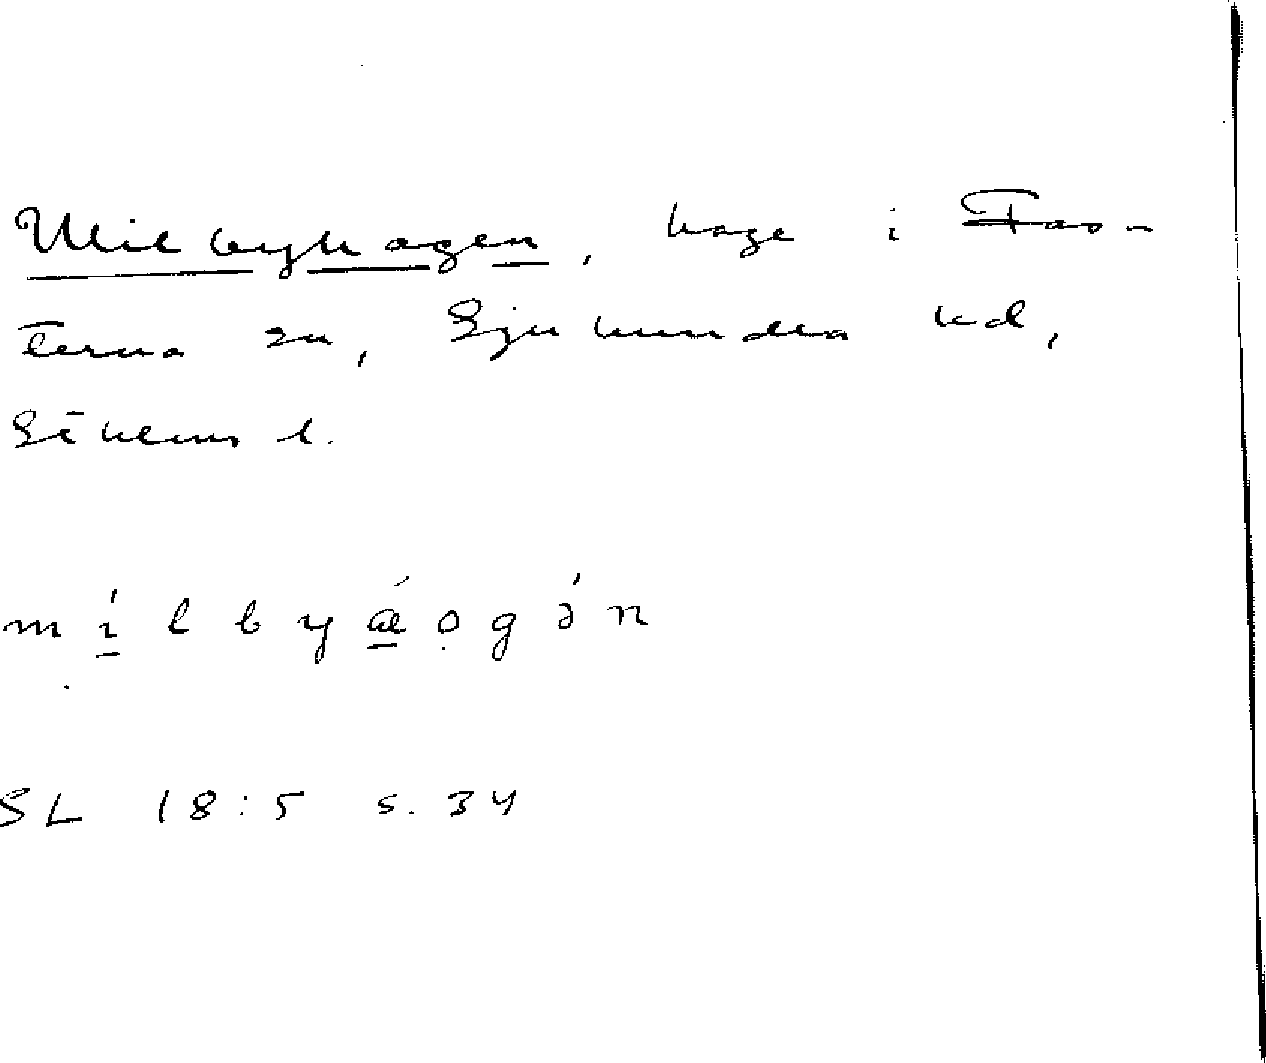 Milbyhagen, hage i Fas-
terna sn, Sjuhundra hd,
Sthlms l.
mí̱lbyǽ̱ọgə́n
SL 18:5 s. 34